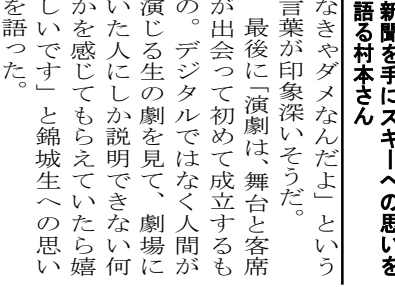 新聞を手にスキーへの思いを
語る村本さん
なきゃダメなんだよ」という
言葉が印象深いそうだ。
最後に「演劇は、舞台と客席
が出会って初めて成立するも
の。デジタルではなく人間が
演じる生の劇を見て、劇場に
いた人にしか説明できない何
かを感じてもらえていたら嬉
しいです」と錦城生への思い
を語った。